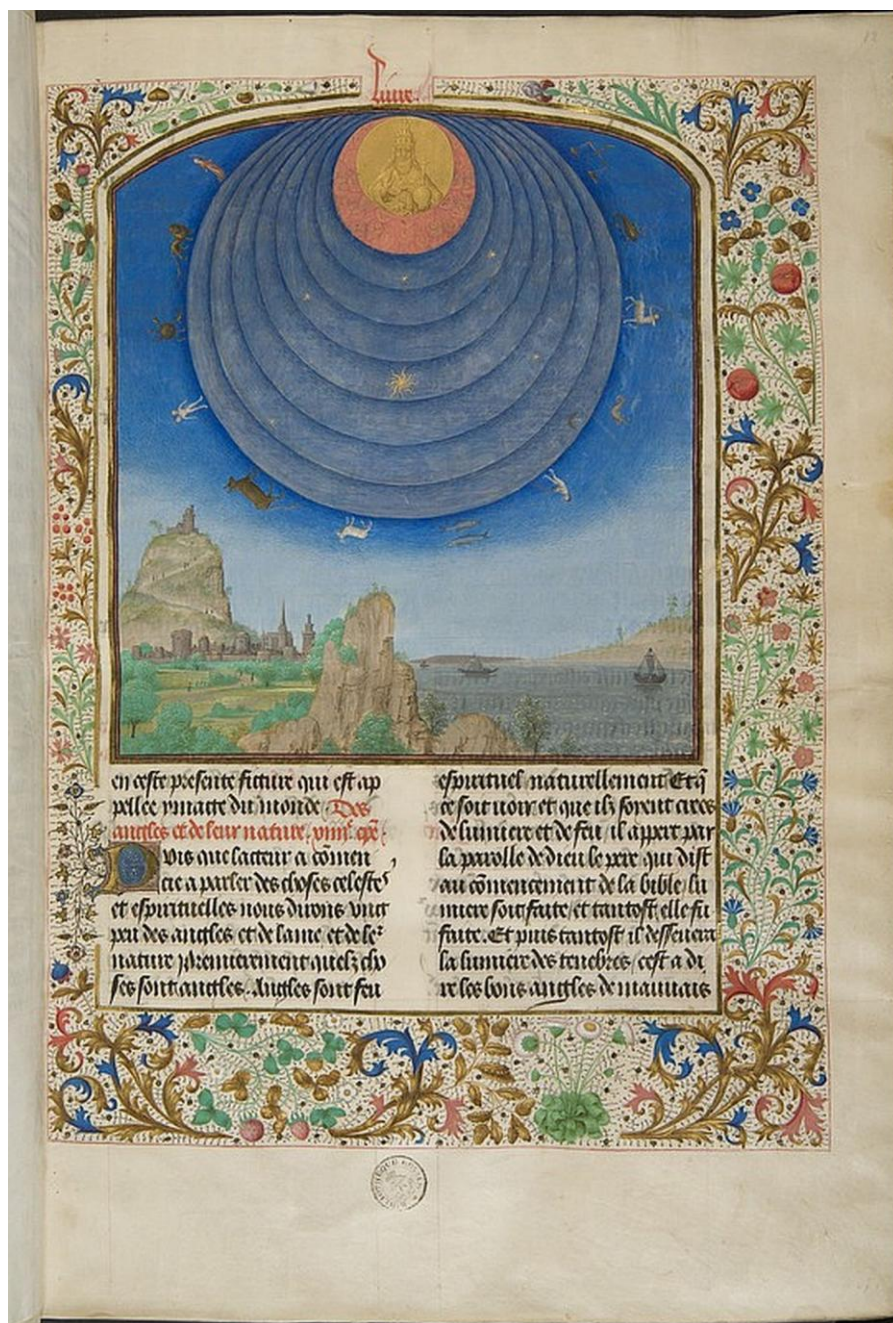 Liure
en ceste presente figure qui est ap
pellee ymaige du monde Des
angles et de leur nature
Puis que lacteur a cõmen
cie a parler des choses celestes
et espirituelles nous dirons vng
peu des angles et de lame et de leʳ
nature premierement quelz cho
ses sont angles. Angles sont feu
espirituel naturellement Et q̃
ce soit voir et que ilz soyent crees
de lumiere et de feu / il appert par
la parolle de dieu le pere qui dist
au cõmencement de la bible / lu
miere soit faite / et tantost elle fu
faite. Et puis tantost il desseura
la lumiere des tenebres / cest a di
re les bons angles de mauuais